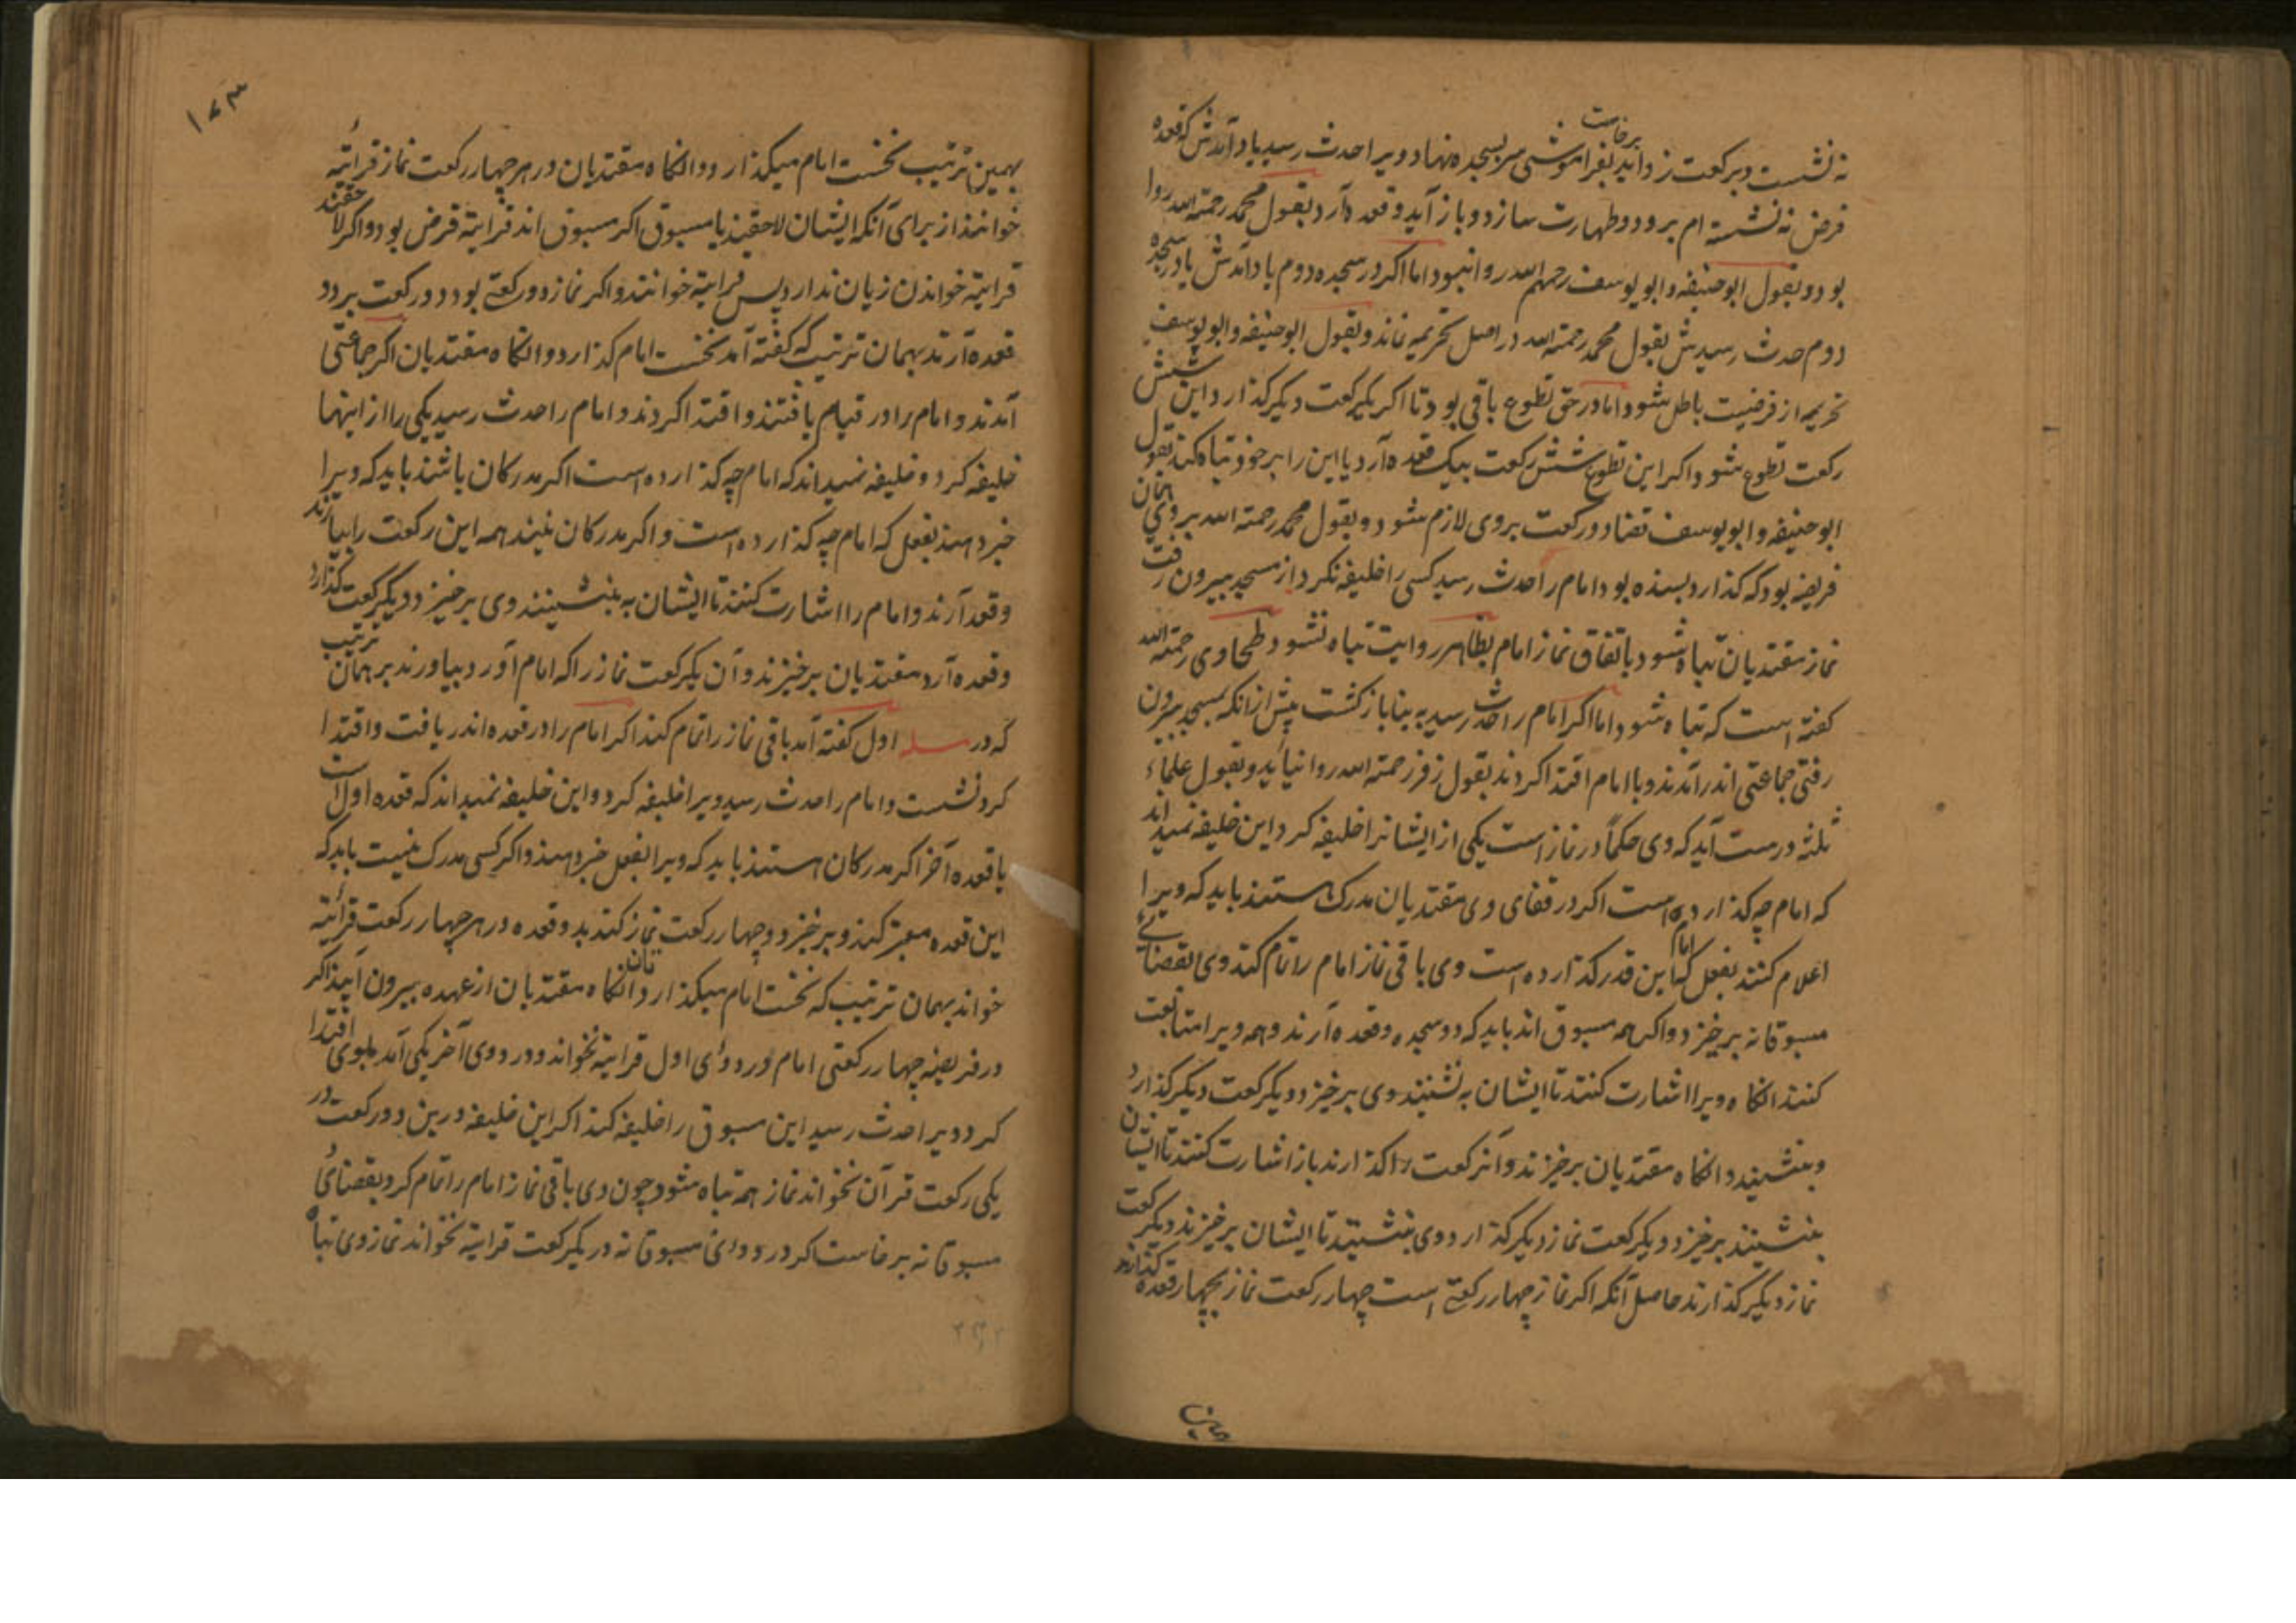 نه نشست و برکعت زواید بفراموشی برخاست سر بسجده نهاد و ویرا حدث رسید یاد آمدش که قعده
فرض نه نشسته ام برود و طهارت سازد و باز آید و قعده آرد بقول محمد رحمته الله روا
بود و بقول ابو حنیفه و ابو یوسف رحمهم الله روا نبود اما اگر در سجده دوم یاد آمدش یا در سجده
دوم حدث رسیدش بقول محمد رحمته الله در اصل تحریمه نماند و بقول ابو حنیفه و ابو یوسف
تحریمه از فرضیت باطل شود اما در حق تطوع باقی بود تا اگر یکرکعت دیگر گذارد این شش
رکعت تطوع شود و اگر این تطوع شش رکعت بیک قعده آرد یا این را بر خود تباه کند بقول
ابو حنیفه و ابو یوسف قضا دو رکعت بروی لازم شود و بقول محمد رحمته الله بروی همان
فریضه بود که گذارد بسنده بود امام را حدث رسید کسی را خلیفه نکرد از مسجد بیرون رفت
نماز مقتدیان تباه شود باتفاق نماز امام بظاهر روایت تباه نشود طحاوی رحمته الله
گفته است که تباه شود اما اگر امام را حدث رسید به بنا بازگشت پیش از انکه بمسجد بیرون
رفتی جماعتی اندر آمدند و با امام اقتدا کردند بقول زفر رحمته الله روا نیاید و بقول علماء
ثلثه درست آید که وی حکماً در نماز است یکی از ایشانرا خلیفه کرد این خلیفه نمیداند
که امام چه گذارده است اگر در قفای وی مقتدیان مدرک هستند باید که ویرا
اعلام کنند بفعل که امام این قدر گذارده است وی باقی نماز امام را تمام کند و وی بقضائے
مسبوقانه برخیزد و اگر همه مسبوق اند باید که دو سجده و قعده آرند و همه ویرا متابعت
کنند انگاه ویرا اشارت کنند تا ایشان به نشینند وی برخیزد و یکرکعت دیگر گذارد
و بنشیند و انگاه مقتدیان برخیزند و آنرکعت را گذارند باز اشارت کنند تا ایشان
بنشینند برخیزد و یکرکعت نماز دیگر گذارد وی بنشیند تا ایشان برخیزند و یکرکعت
نماز دیگر گذارند حاصل آنکه اگر نماز چهار رکعتے است چهار رکعت نماز بچهار قعده گذارند
۱۷۳
بهمین ترتیب نخست امام میگذارد و انگاه مقتدیان در هر چهار رکعت نماز قرائته
خوانند از برای آنکه ایشان لاحقند یا مسبوق اگر مسبوق اند قرائته فرض بود و اگر لاحقند
قرائته خواندن زیان ندارد پس قرائته خوانند و اگر نماز دو رکعتے بود دو رکعت بر دو
قعده آرند بهمان ترتیب که گفته آمد نخست امام گذارد و انگاه مقتدیان اگر جماعتی
آمدند و امام را در قیام یافتند و اقتدا کردند و امام را حدث رسید یکی را از اینها
خلیفه کرد و خلیفه نمیداند که امام چه گذارده است اگر مدرکان باشند باید که ویرا
خبر دهند بفعل که امام چه گذارده است و اگر مدرکان نیند همه این رکعت را بیارند
و قعده آرند و امام را اشارت کنند تا ایشان به بنشینند وی برخیزد و یکرکعت گذارد
و قعده آرد مقتدیان برخیزند و آن یکرکعت نماز را که امام آورد بیاورند بر همان ترتیب
که در مسله اول گفته آمد باقی نماز را تمام کنند اگر امام را در قعده اندر یافت و اقتدا
کرد نشست و امام را حدث رسید ویرا خلیفه کرد و این خلیفه نمیداند که قعده اول است
یا قعده آخر اگر مدرکان هستند باید که ویرا بفعل خبر دهند و اگر کسی مدرک نیست باید که
این قعده معتبر کند و برخیزد و چهار رکعت نماز کند بدو قعده در هر چهار رکعت قرائته
خواند بهمان ترتیب که نخست امام میگذارد انگاه مقتدیان تا از عهده بیرون آیند اگر
در فریضه چهار رکعتی امام در دوای اول قرائته نخواند و در دوی آخر یکی آمد بوی اقتدا
کرد و ویرا حدث رسید این مسبوق را خلیفه کند اگر این خلیفه درین دو رکعت در
یکی رکعت قرآن نخواند نماز همه تباه شود چون وی باقی نماز امام را تمام کرد بقضائی
مسبوقانه برخاست اگر در دوای مسبوقانه در یکرکعت قرائته نخواند نماز وی تباه